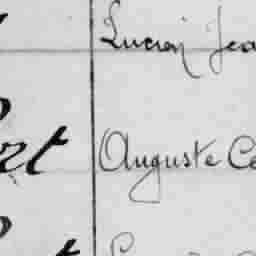 Lucien Jea
rt Auguste Ce